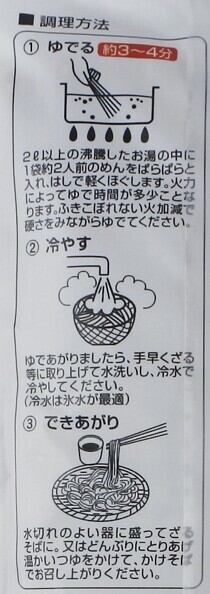 ■ 調理方法
① ゆでる 約3〜4分
2ℓ以上の沸騰したお湯の中に
1袋約2人前のめんをぱらぱらと
入れ、はしで軽くほぐします。火力
によってゆで時間が多少ことな
ります。ふきこぼれない火加減で
硬さをみながらゆでてください。
② 冷やす
ゆであがりましたら、手早くざる
等に取り上げて水洗いし、冷水で
冷やしてください。
(冷水は氷水が最適)
③ できあがり
水切れのよい器に盛ってざる
そばに。又はどんぶりにとりあげ
温かいつゆをかけて、かけそば
でお召し上がりください。